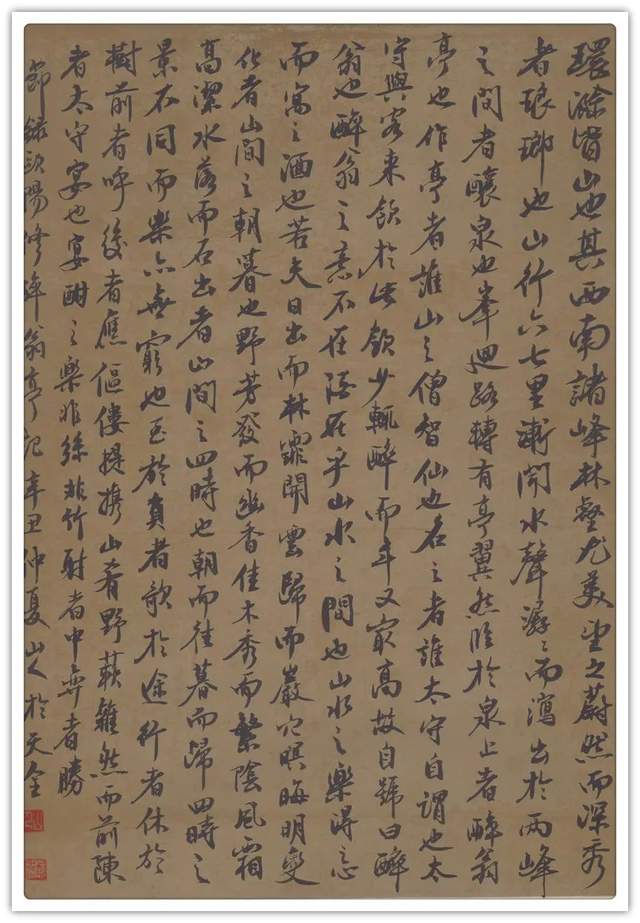 環滁皆山也其西南諸峰林壑尤美望之蔚然而深秀
者琅瑯也山行六七里漸聞水聲潺〻而瀉出於兩峰
之間者釀泉也峯迴路轉有亭翼然臨於泉上者醉翁
亭也作亭者誰山之僧智仙也名之者誰太守自謂也太
守與客來飲於此飲少輒醉而年又冣高故自號曰醉
翁也醉翁之意不在酒在乎山水之間也山水之樂得之心
而寓之酒也若夫日出而林霏開雲歸而巖穴暝晦明變
化者山間之朝暮也野芳發而幽香佳木秀而繁陰風霜
高潔水落而石出者山間之四時也朝而往暮而歸四時之
景不同而樂亦無窮也至於負者歌於途行者休於
樹前者呼後者應傴僂提攜山肴野蔌雜然而前陳
者太守宴也宴酣之樂非絲非竹射者中弈者勝
節錄歐陽修醉翁亭記辛丑仲夏山人於天全